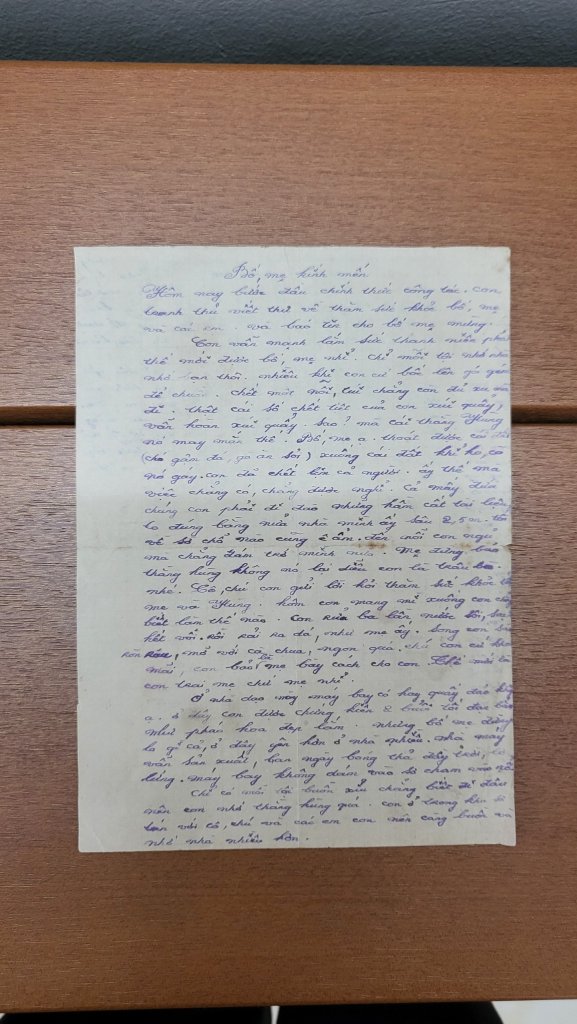 Bố, mẹ kính mến
Hôm nay bước đầu chính thức công tác. Con
tranh thủ viết thư về thăm sức khỏe bố, mẹ
và các em. và báo tin cho bố mẹ mừng.
Con vẫn mạnh lắm sức thanh niên phải
thế mới được bố, mẹ nhỉ. Chỉ mỗi tội nhớ nhà
nhớ bạn thôi. nhiều khi con cứ bốc lên
để chuồn. Chết một nỗi, cuĩ chẳng con đi
đi. thật cái số chết tiệt của con xúi quẩy
vẫn hoàn xúi quẩy. Sao mà cái thằng Hưng
nó may mắn thế. Bố, mẹ ạ. thoát được cái
(chó gặm đá, gà ăn sỏi) xuống cái đất khỉ ho, cò
nó gáy. con đã chết lên cả người. ấy thế mà
việc chẳng có, chẳng được nghỉ. Cả mấy đứa
chúng con phải đi đào những hầm cất tài liệu
to đúng bằng nửa nhà mình ấy sâu 2,5m. tối
về sờ chỗ nào cũng ê ẩm. đến nỗi con ngủ
mà chẳng dám trở mình nữa. Mẹ đừng bảo
thằng hưng không nó lại siễu con là trâu
nhé. Cô, chú con gửi lời hỏi thăm sức khỏe
mẹ và Hưng. hôm con mang mì xuống con chẳng
biết làm thế nào. Con rửa ba lần nước rồi,
hết vôi. rồi rải ra đá, như mẹ ấy. Song con
mở với cà chua, ngon quá. chú con cứ khen
mãi, con bảo là mẹ bày cách cho con. thế mới là
con trai mẹ chứ mẹ nhỉ.
Ở nhà dạo này máy bay có hay quấy, đảo không
ạ. ở đây con được chứng kiến 2 buổi tối
như pháo hoa đẹp lắm. nhưng bố mẹ đừng
lo gì cả, ở đây yên hơn ở nhà nhiều. Nhà máy
vẫn sản xuất, ban ngày bóng thả đầy trời,
lửng. máy bay không dám vào
Chỉ có mỗi tội buồn xỉu chẳng biết đi đâu
nên con nhớ thằng hùng quá. con ở trong khu
với cô, chú và các em con nên càng buồn và
nhớ nhà nhiều hơn.